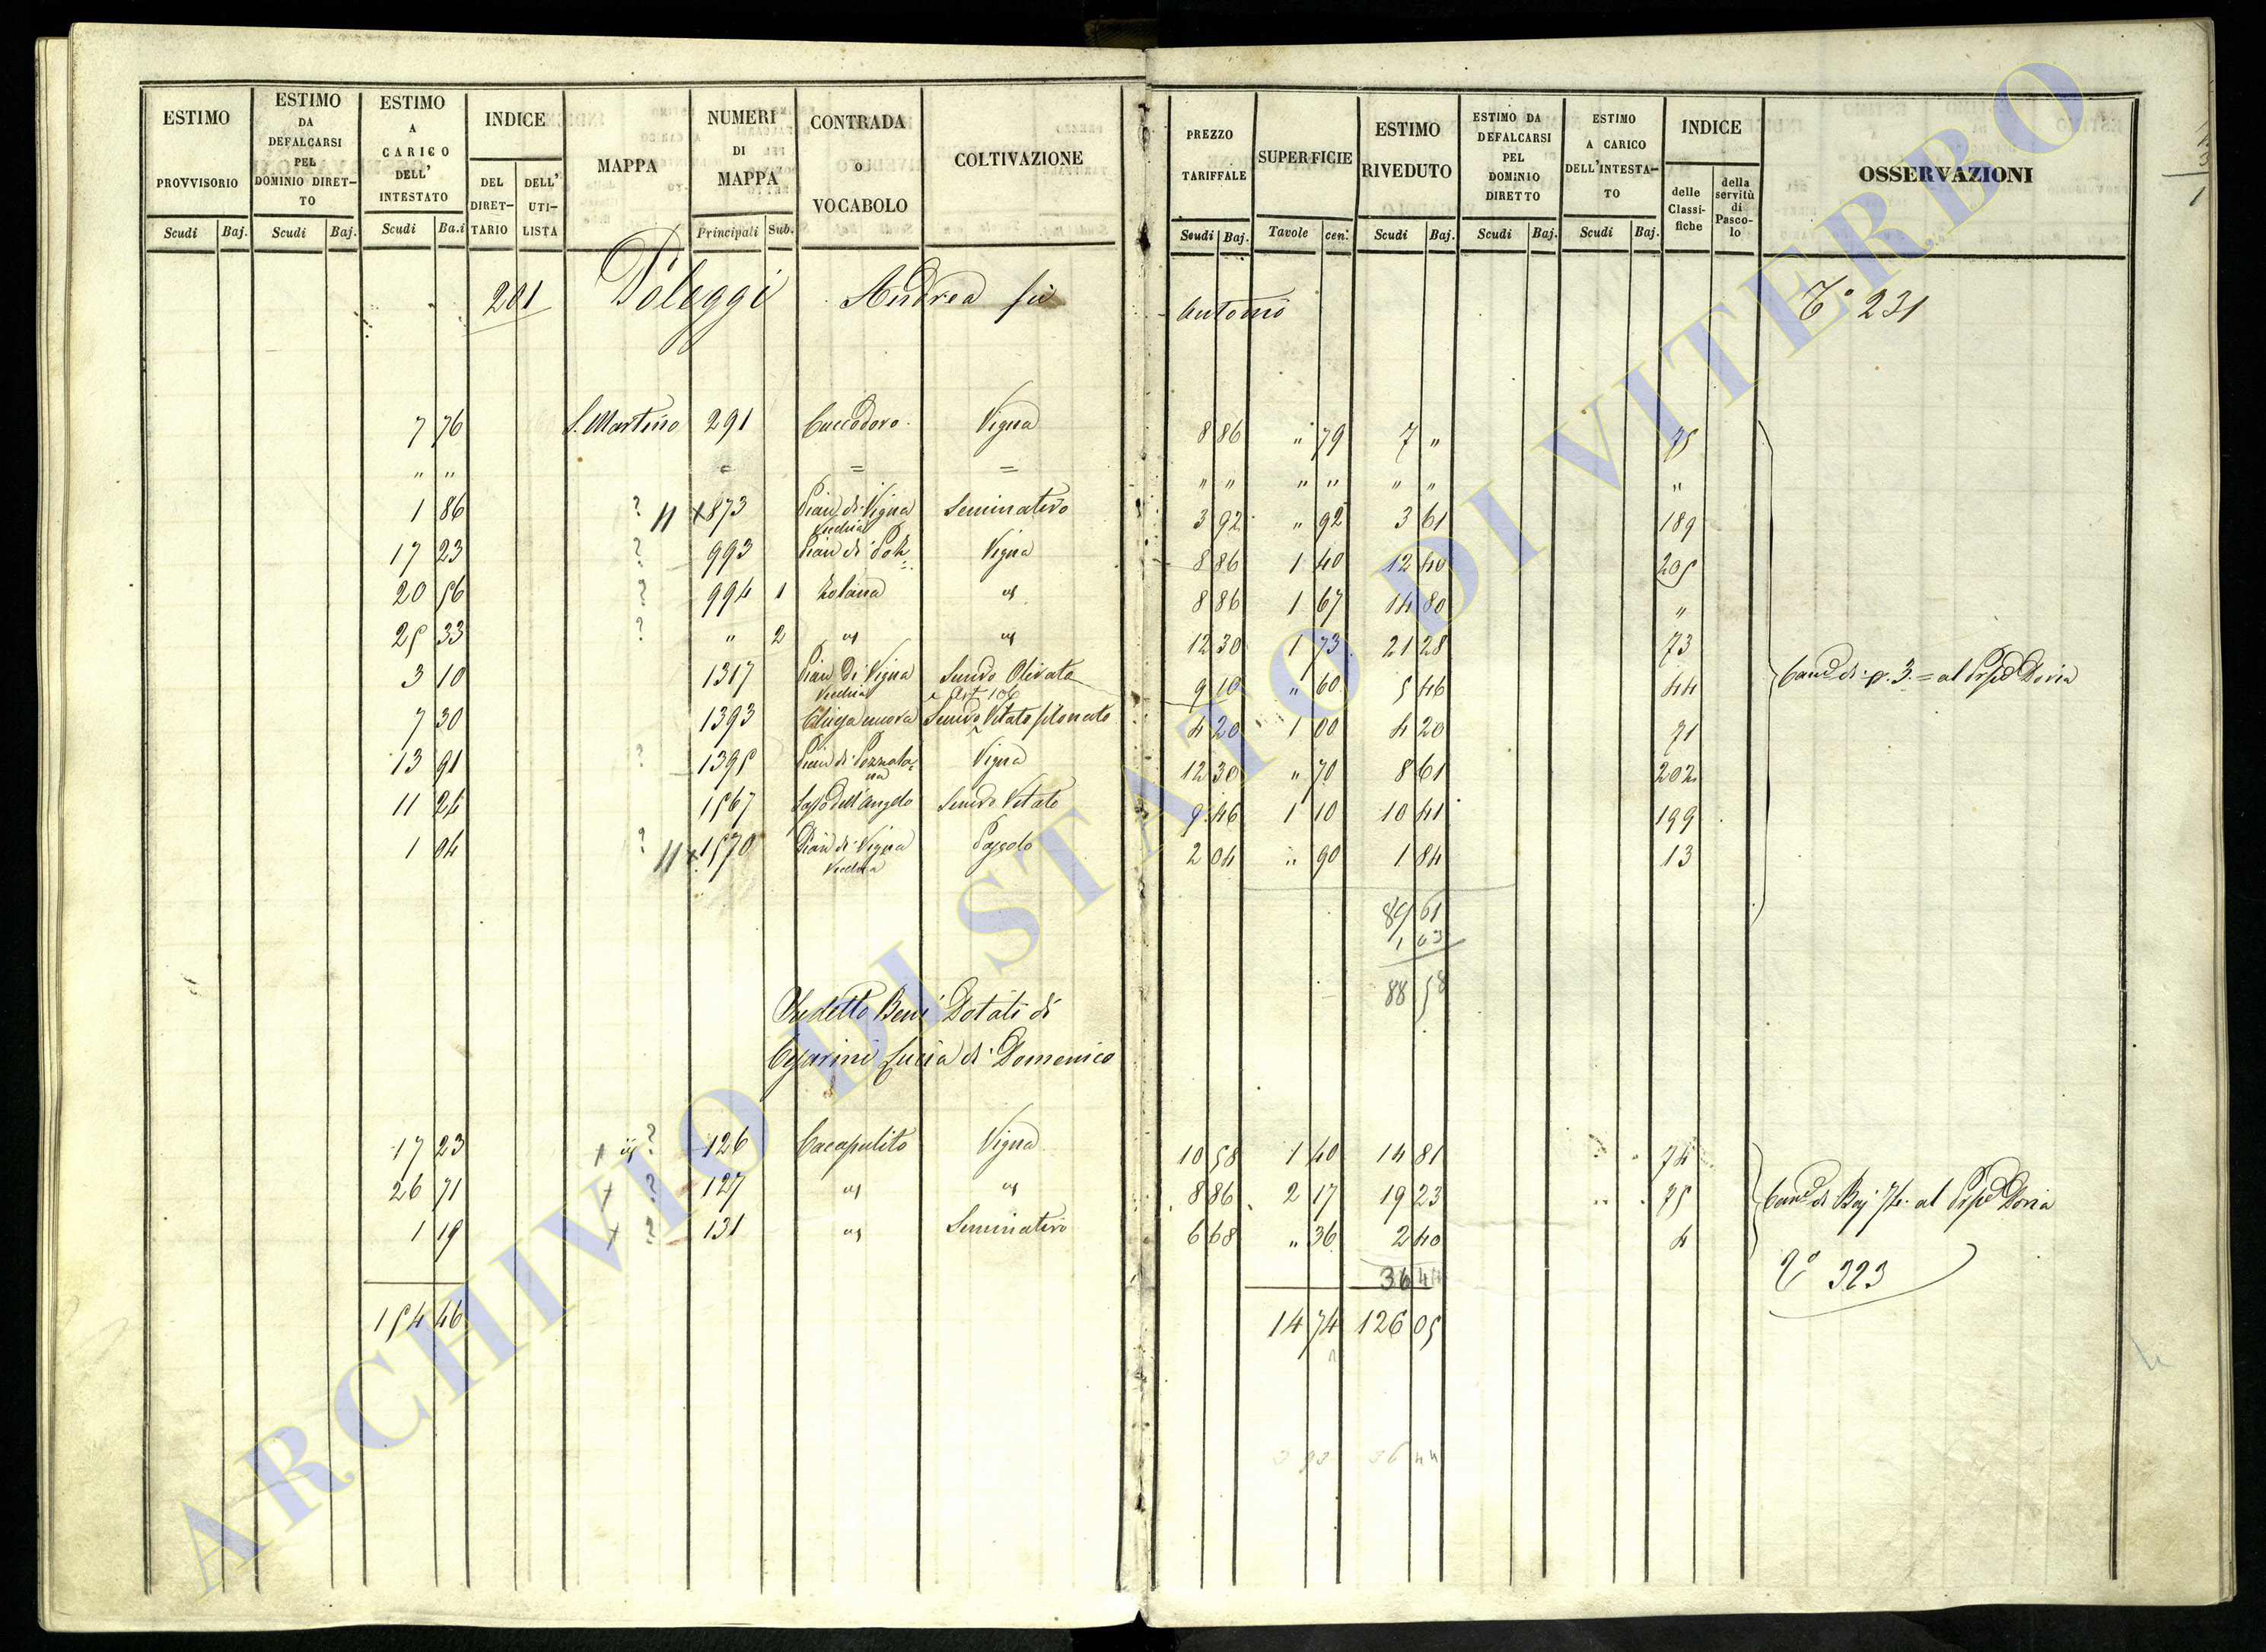 ESTIMO PROVVISORIO Scudi Baj.
ESTIMO DA DEFALCARSI PEL DOMINIO DIRET-TO Scudi Baj.
ESTIMO A CARICO DELL' INTESTATO Scudi Ba.i
INDICE DEL DIRET-TARIO DELL' UTI-LISTA
MAPPA
NUMERI DI MAPPA Principali Sub.
CONTRADA o VOCABOLO
COLTIVAZIONE
PREZZO TARIFFALE Scudi Baj.
SUPERFICIE Tavole cen.
ESTIMO RIVEDUTO Scudi Baj.
ESTIMO DA DEFALCARSI PEL DOMINIO DIRETTO Scudi Baj.
ESTIMO A CARICO DELL'INTESTA-TO Scudi Baj.
INDICE delle Classi-fiche della servitù di Pasco-lo
OSSERVAZIONI
201 Poleggi Andrea fu Antonio T° 231
7 76 S. Martino 291 Cuccodoro Vigna 8 86 " 79 7 " 75
" " = = = " " " " " " "
1 86 ? 873 Pian di Vigna Vecchia Seminativo 3 92 " 92 3 61 189
17 23 ? 993 Pian di Poz= Vigna 8 86 1 40 12 40 205
20 56 ? 994 1 zolana " 8 86 1 67 14 80 "
25 33 ? " 2 " " 12 30 1 73 21 28 73
3 10 1317 Pian di Vigna Vecchia Semvo Olivato 9 10 " 60 5 46 44
Art 106
7 30 1393 Chiusa nuova Semvo Vitato 4 20 1 00 4 20 71
13 91 ? 1395 Pian di Pozzola=na Vigna 12 30 " 70 8 61 202
11 24 1567 Sasso dell'Angelo Semvo Vitato 9 46 1 10 10 41 199
1 04 ? 1570 Pian di Vigna Vecchia Pascolo 2 04 " 90 1 84 13
di 3 = al Doria
89 61
1 03
88 58
Sudetto Beni Dotali di
Cesarini Lucia di Domenico
17 23 ? 126 Cacapulito Vigna 10 58 1 40 14 81 74
26 71 ? 127 " " 8 86 2 17 19 23 75
1 19 ? 131 " Seminativo 6 68 " 36 2 40 4
di Baj 74 al Doria
T° 323
36 44
154 46 14 74 126 05
36 44
ARCHIVIO DI STATO DI VITERBO